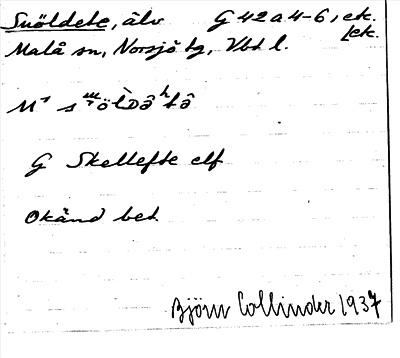 Suöldete, älv G 42 a 4-6, ek.
fek.
Malå sn, Norsjö tg, Vbt l.
G Skellefte elf
Okänd bet.
Björn Collinder 1937